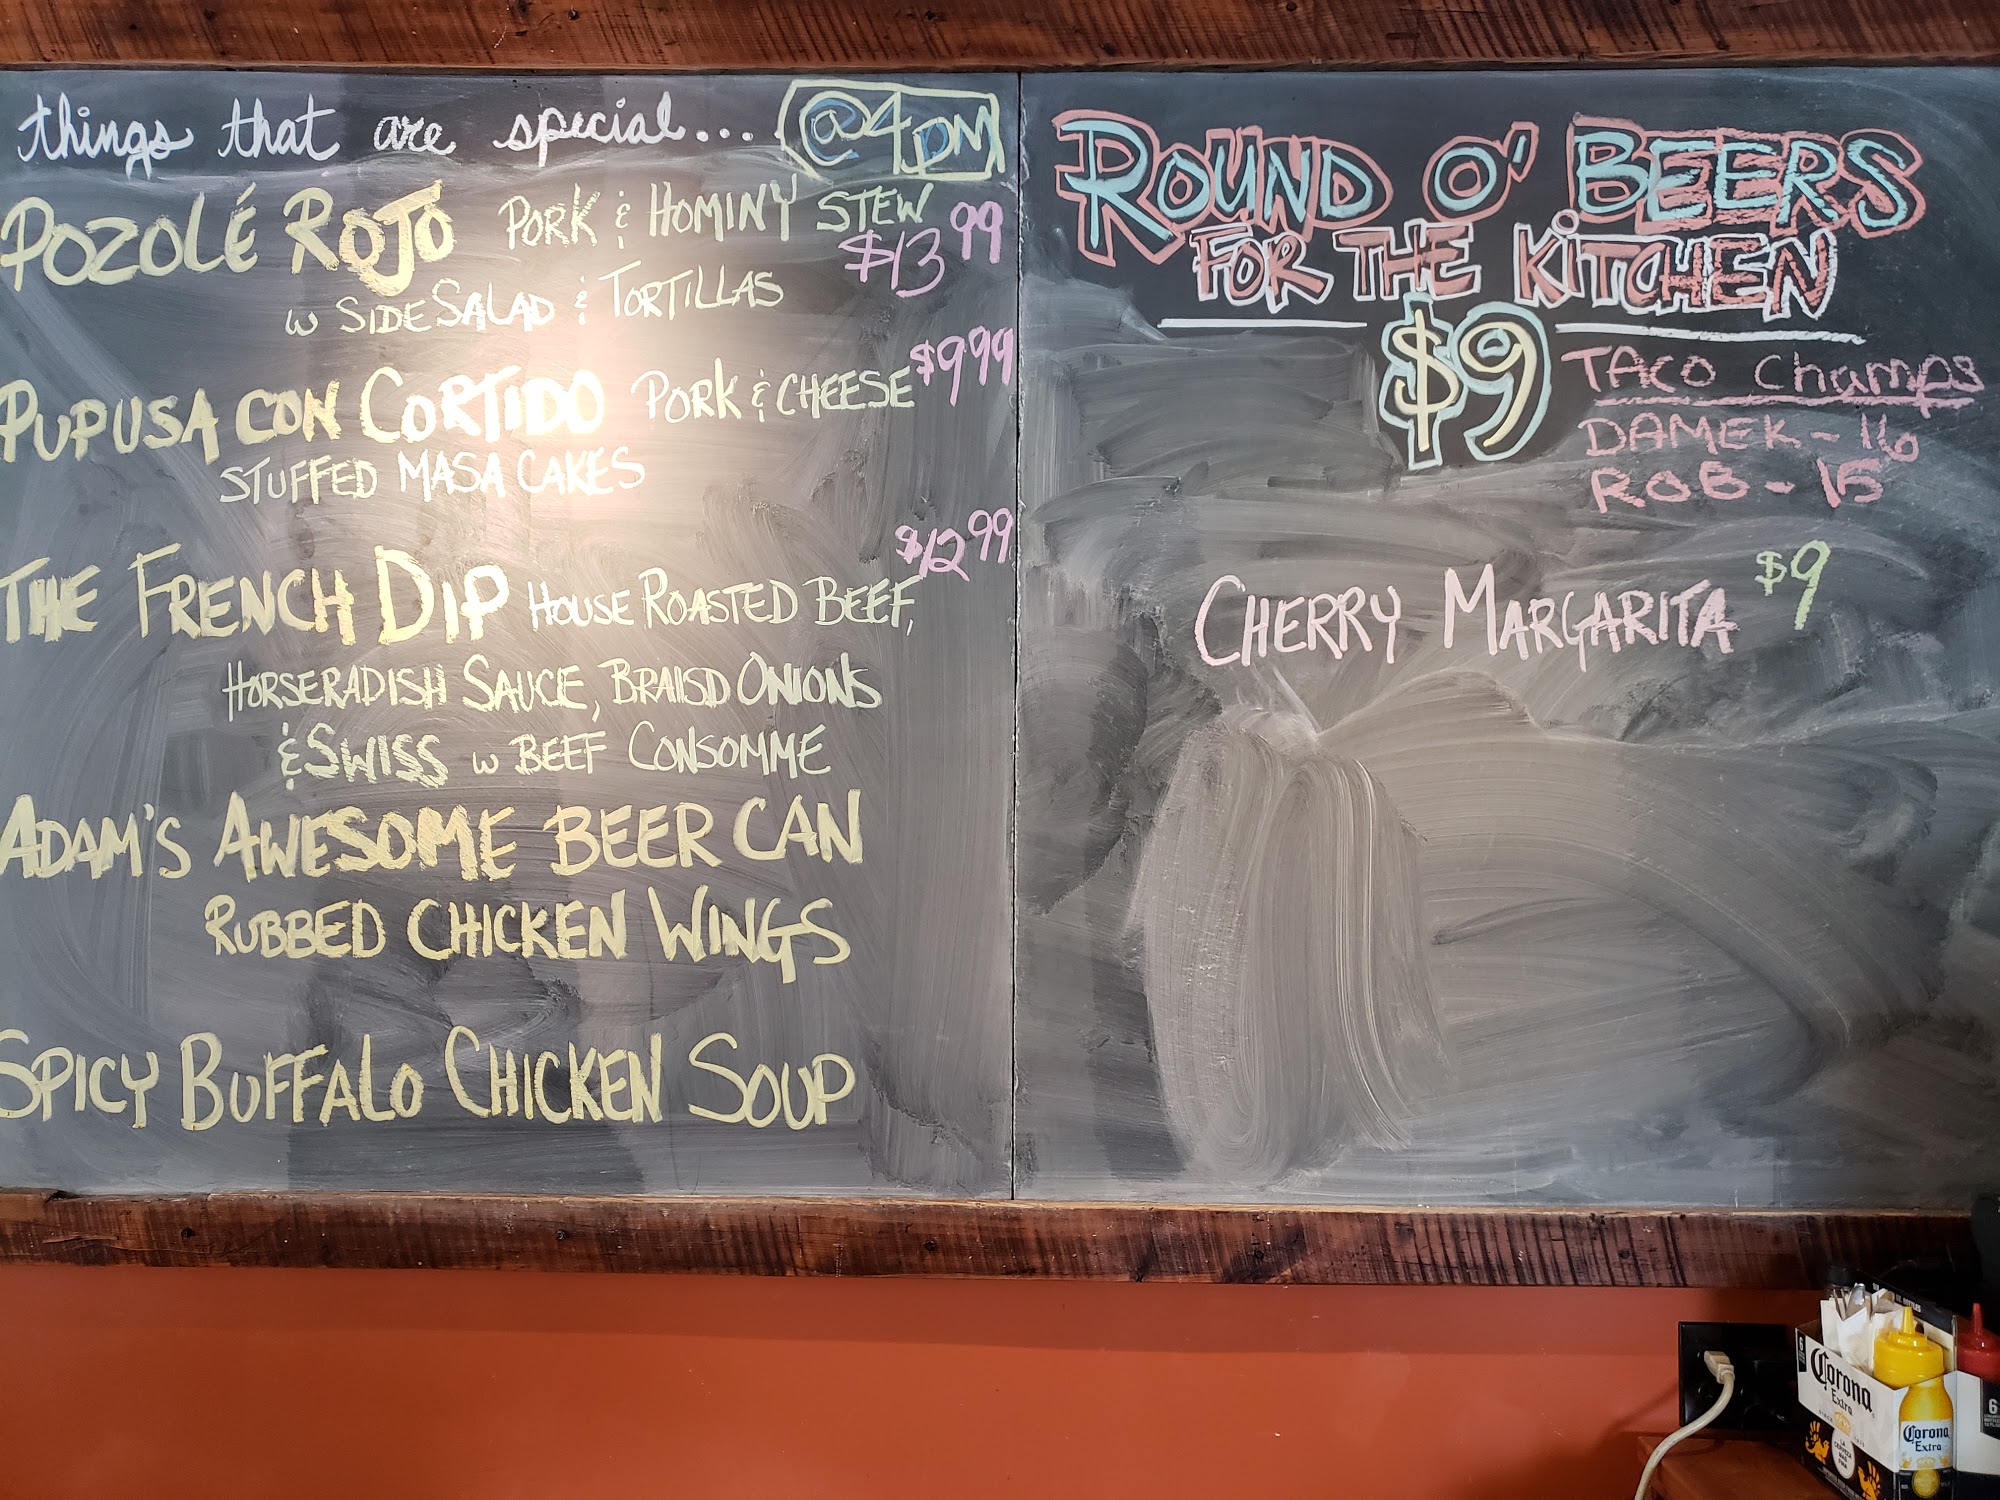 things that are special.... @4pm
POZOLÉ ROJO PORK & HOMINY STEW $13.99
w SIDE SALAD & TORTILLAS
PUPUSA CON CORTIDO PORK & CHEESE $9.99
STUFFED MASA CAKES
THE FRENCH DIP HOUSE ROASTED BEEF, $12.99
HORSERADISH SAUCE, BRAIISD ONIONS
& SWISS w BEEF CONSOMME
ADAM'S AWESOME BEER CAN
RUBBED CHICKEN WINGS
SPICY BUFFALO CHICKEN SOUP
ROUND O' BEERS
FOR THE KITCHEN
$9
TACO Champs
DAMEK - 16
ROB - 15
CHERRY MARGARITA $9
Corona
Extra
Corona
Extra
6